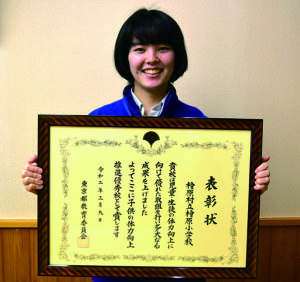 表彰状
檜原村立檜原小学校
貴校は児童・生徒の体力向上に
向けて優れた取組を行い多大なる
成果を上げました
よってここに子供の体力向上
推進優秀校として賞します
令和二年三月九日
東京都教育委員会